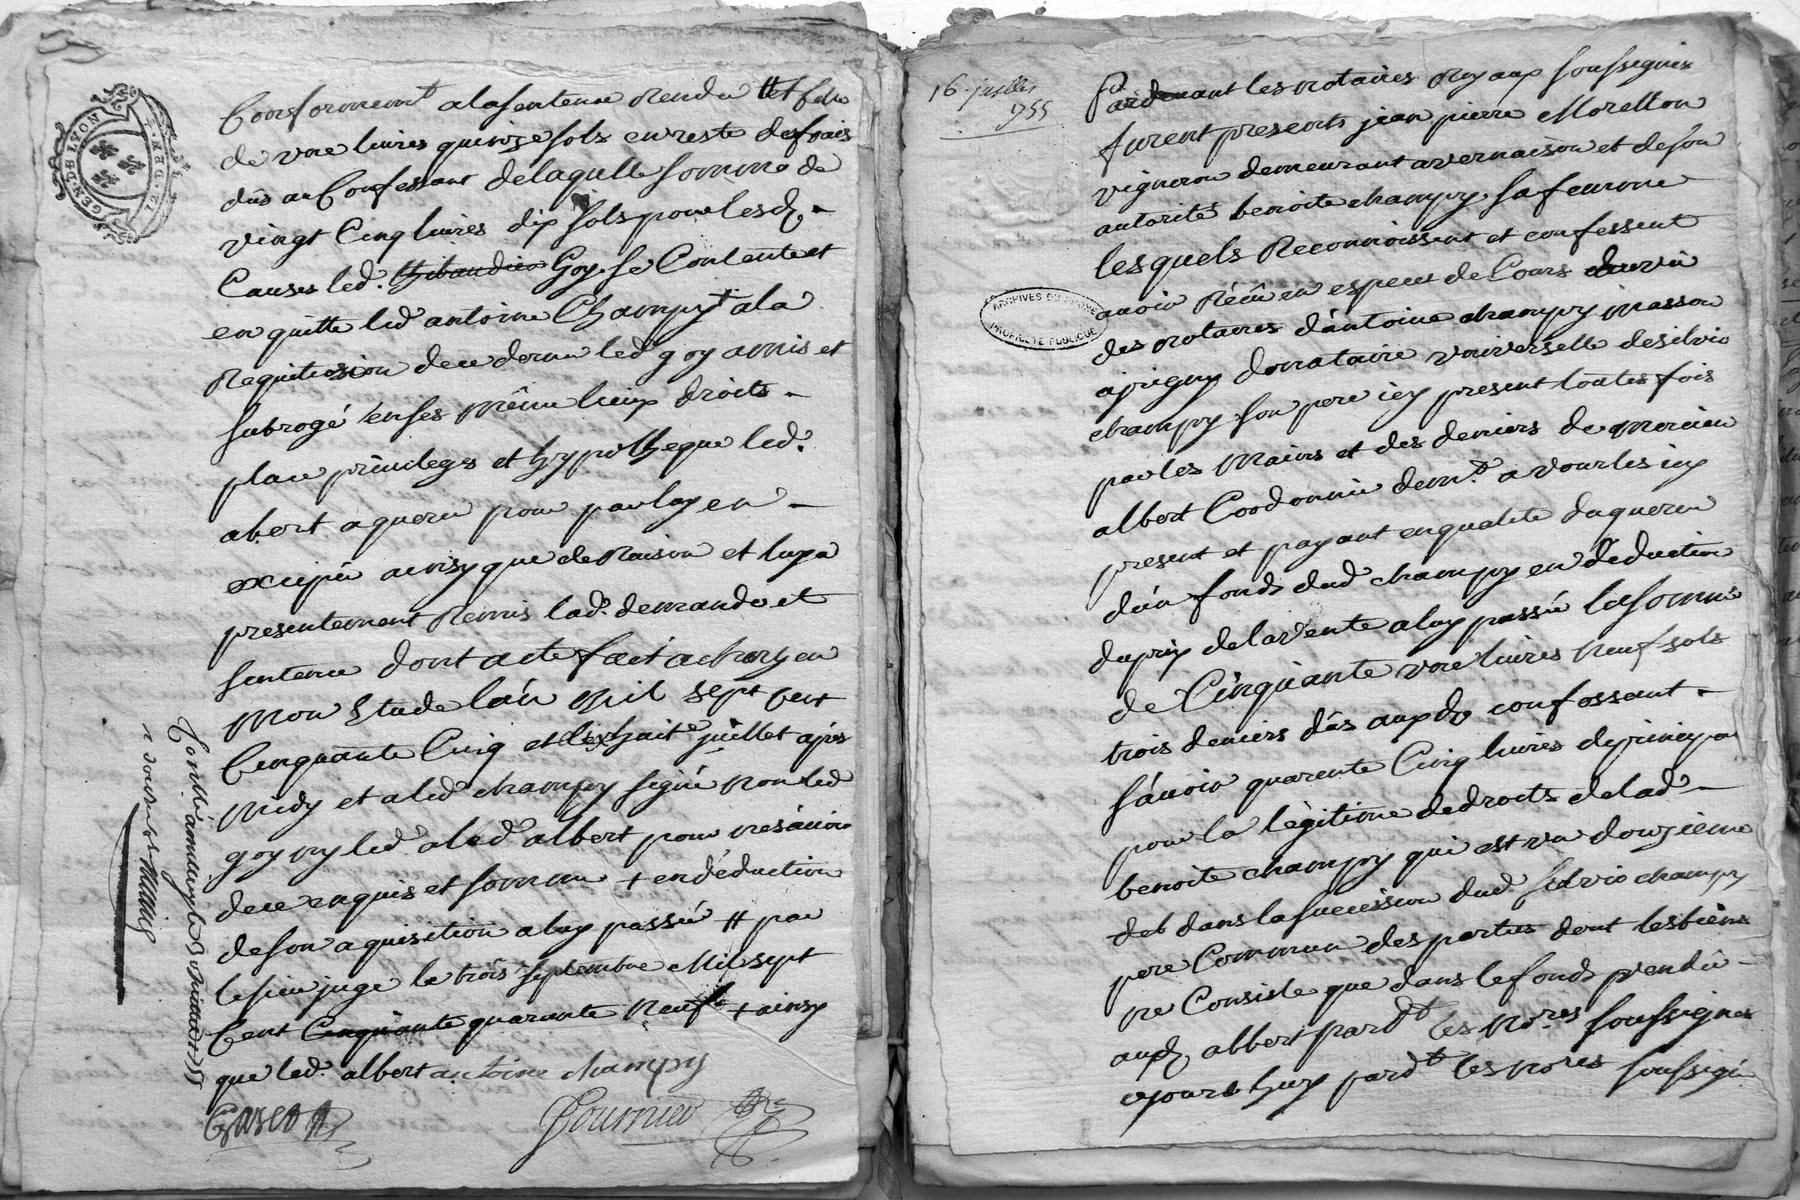 GEN. DE LYON
12. DEN. T
Conformemt. a la sentence rendu
de une livres quinze sols en reste des frais
dûs au Confessant de laquelle somme de
vingt Cinq livres dix sols pour lesd.
Causes led. Thibaudier Goy se Contente et
en quitte led antoine Champy a la
Requition de ce dernier led goy a mis et
subrogé en ses même lieux droits
place privileges et hypotheque led.
abert aquereur pour par luy en
exciper ainsy que de Raison et luy a
presentement Remis lad. demande et
sentence dont acte fait a charly en
mon Etude l'an Mil sept cent
Cinquante Cinq et le huit juillet après
midy et a led champy signé non led
goy ny led albert pour ne sávoir
de ce enquis et sommé + en déduction
de son aquisition a luy passée # par
le sieur juge le trois septembre Mil sept
Cent Cinquante quarante Neuf + ainsy
que led. albert antoine champy
Gascon
Fournier
16. juillet
1755
Pardevant les notaires Royaux soussignés
furent presents jean pierre Morellon
vigneron demeurant a vernaison et de son
autorité benoite champy sa femme
lesquels Reconnoissent et confessent
avoir Récû en especes de Cours
des notaires d'antoine champy masson
a jrigny donnataire universelle de silvio
champy son pere icy present toutes fois
par les mains et des deniers de
albert Cordonnier demt. a vourles icy
present et payant en qualité daquereur
d'un fonds dud champy en déduction
du prix de la vente a luy passée la somme
de Cinquante une livres neuf sols
trois deniers dûs auxd. confessant
sávoir quarente Cinq livres de principal
pour la légitime de droits de lad
benoite champy qui est un douzieme
deb dans la succession dud silvio champy
pere Commun des parties dont les biens
ne Consiste que dans le fonds vendû
aud albert pard.t les no.res soussignes
ajourd huy pard.t les no.res soussigné
ARCHIVES DU RHONE
PROPRIETE PUBLIQUE